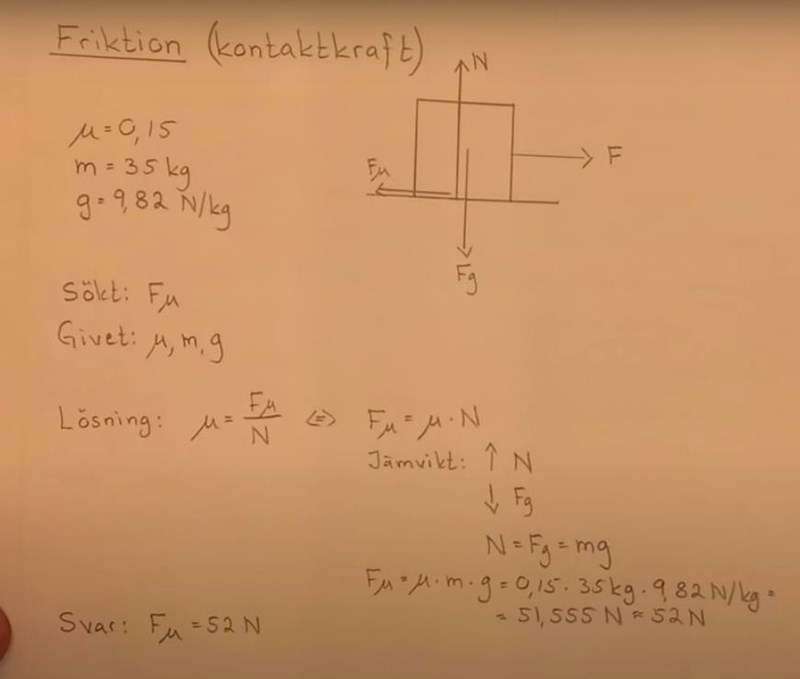 Friktion (kontaktkraft)
N
F
Fμ
Fg
μ = 0,15
m = 35 kg
g = 9,82 N/kg
Sökt: Fμ
Givet: μ, m, g
Lösning: μ = Fμ/N ⇔ Fμ = μ · N
Jämvikt: ↑ N
↓ Fg
N = Fg = mg
Fμ = μ · m · g = 0,15 · 35 kg · 9,82 N/kg =
= 51,555 N ≈ 52 N
Svar: Fμ = 52 N